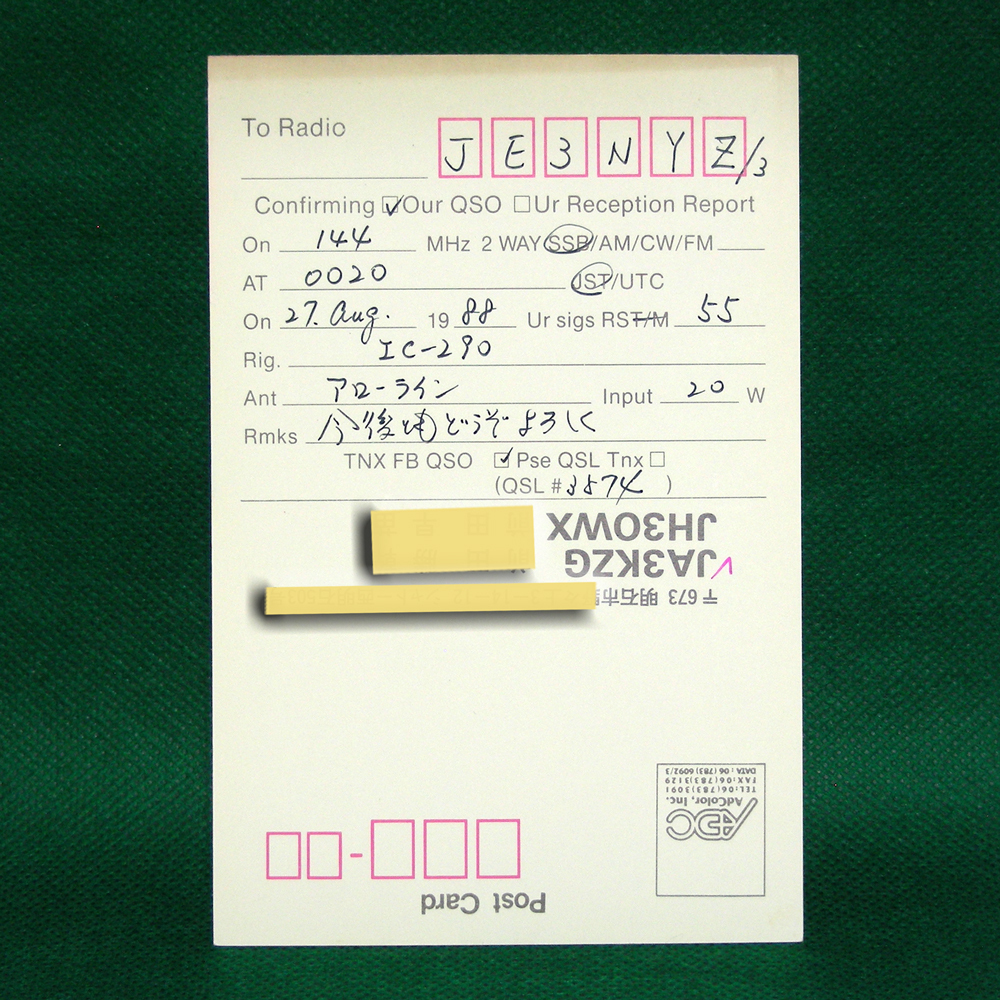 To Radio JE3NYZ/3
Confirming ☑Our QSO ☐Ur Reception Report
On 144 MHz 2 WAY SSB/AM/CW/FM
AT 0020 JST/UTC
On 27. Aug. 1988 Ur sigs RST/M 55
Rig. IC-290
Ant アローライン Input 20 W
Rmks 今後ともどうぞよろしく
TNX FB QSO ☑Pse QSL Tnx☐
(QSL #3574 )
JH3OWX
JA3KZG
〒673 明石市
DATA:06(783)6092/3
FAX:06(783)3129
TEL:06(783)3091
AdColor, Inc.
ADC
Post Card